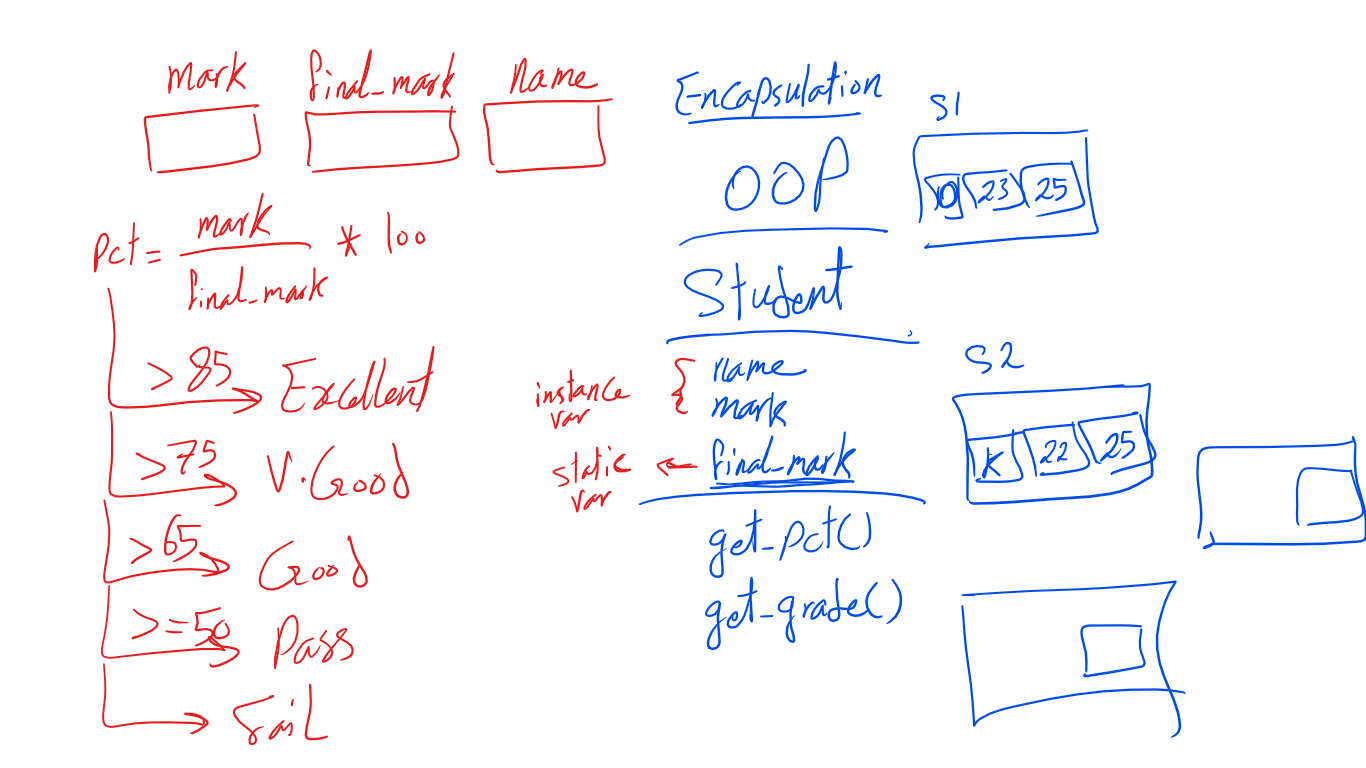 mark final_mark Name
Pct = mark / final_mark * 100
> 85 Excellent
> 75 V.Good
> 65 Good
>= 50 Pass
Fail
Encapsulation
OOP
Student
instance var { name
mark
static var ← final_mark
get_pct()
get_grade()
S1
23 25
S2
K 22 25